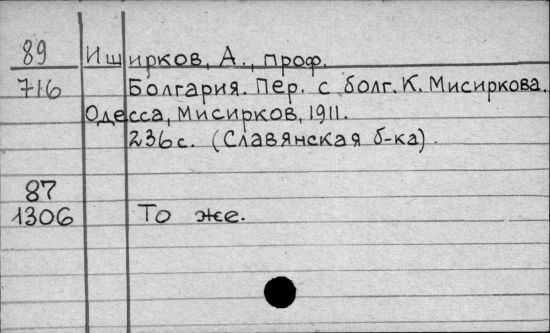 89 Иширков, А., проф.
716 Болгария. Пер. с болг. К. Мисиркова.
Одесса, Мисирков, 1911.
236с. (Славянская б-ка).
87
1306 То же.